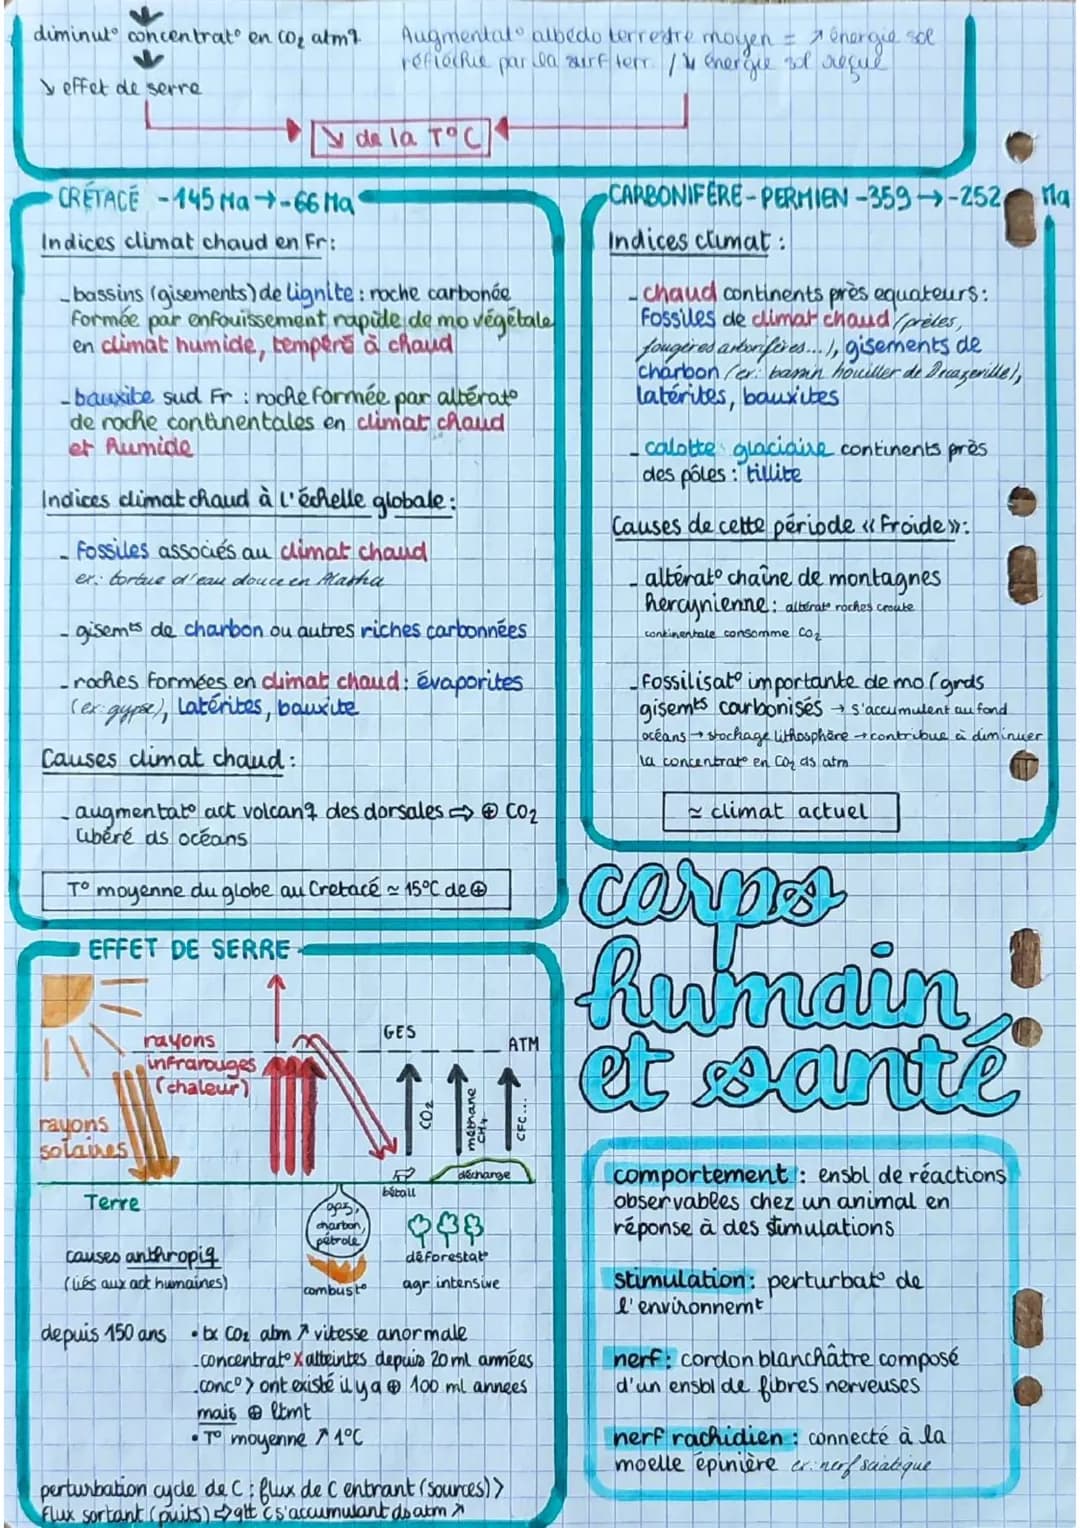 diminut° concentrat° en CO2 atmq
↘ effet de serre
Augmentat° albédo terrestre moyen = ↗ énergie sol
réfléchie par la surf terr. / ↘ énergie sol reçue
↘ de la T°C
CRÉTACÉ -145 Ma → -66 Ma
Indices climat chaud en Fr :
- bassins (gisements) de lignite : roche carbonée
formée par enfouissement rapide de mo végétale
en climat humide, tempéré à chaud
- bauxite sud Fr : roche formée par altérat°
de roche continentales en climat chaud
et humide
Indices climat chaud à l'échelle globale :
- Fossiles associés au climat chaud
ex: tortue d'eau douce en Alaska
- gisemts de charbon ou autres riches carbonnées
- roches formées en climat chaud : évaporites
(ex: gypse), latérites, bauxite
Causes climat chaud :
- augmentat° act volcanq des dorsales ⇒ ⊕ CO2
libéré ds océans
T° moyenne du globe au Cretacé ≃ 15°C de ⊕
CARBONIFÈRE - PERMIEN -359 → -252 Ma
Indices climat :
- chaud continents près equateurs :
Fossiles de climat chaud (prèles,
fougères arborifères...), gisements de
charbon (ex: bassin houiller de Decazeville),
latérites, bauxites
- calotte glaciaire continents près
des pôles : tillite
Causes de cette période « Froide » :
- altérat° chaîne de montagnes
hercynienne : altérat° roches croute
continentale consomme CO2
- Fossilisat° importante de mo (grds
gisemts carbonisés → s'accumulent au fond
océans → stockage lithosphère → contribue à diminuer
la concentrat° en CO2 ds atm
≃ climat actuel
EFFET DE SERRE
rayons
infrarouges
(chaleur)
rayons
solaires
GES
ATM
CO2
méthane
CH4
CFC...
Terre
bétail
décharge
gaz,
charbon,
pétrole
combust°
déforestat°
agr intensive
causes anthropiq
(liés aux act humaines)
depuis 150 ans
• tx CO2 atm ↗ vitesse anormale
- concentrat° X atteintes depuis 20 ml années
- conc° > ont existé il y a ⊕ 100 ml annees
mais ⊕ ltmt
• T° moyenne ↗ 1°C
perturbation cycle de C : flux de C entrant (sources) >
Flux sortant (puits) ⇒ qtt C s'accumulant ds atm ↗
corps
humain
et santé
comportement : ensbl de réactions
observables chez un animal en
réponse à des stimulations
stimulation : perturbat° de
l'environnemt
nerf : cordon blanchâtre composé
d'un ensbl de fibres nerveuses
nerf rachidien : connecté à la
moelle épinière ex: nerf sciatique